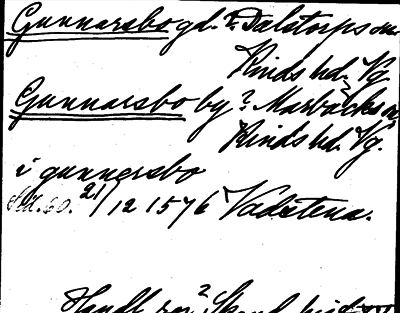 Gunnarsbo gd. ? Dalstorps sn
Kinds hd. Vg.
Gunnarsbo by ? Marbäcks sn
Kinds hd. Vg.
i gunnersbo
21/12 1576 Vadstena.
Handl. rör Skand. hist.